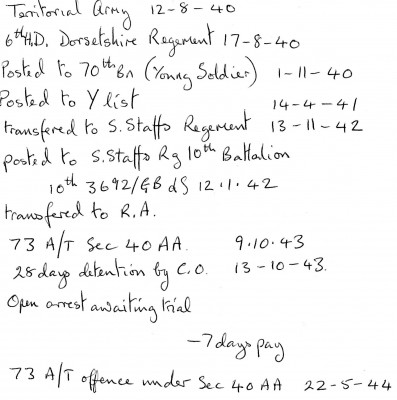 Territorial Army 12-8-40
6th H.D. Dorsetshire Regement 17-8-40
Posted to 70th Bn (Young Soldier) 1-11-40
Posted to Y list 14-4-41
transfered to S. Staffs Regement 13-11-42
posted to S. Staffs Rg 10th Battalion
10th 3692/GB dS 12.1.42
transfered to R.A.
73 A/T Sec 40 AA. 9.10.43
28 days detention by C.O. 13-10-43.
Open arrest awaiting trial
-7 days pay
73 A/T offence under Sec 40 AA 22-5-44